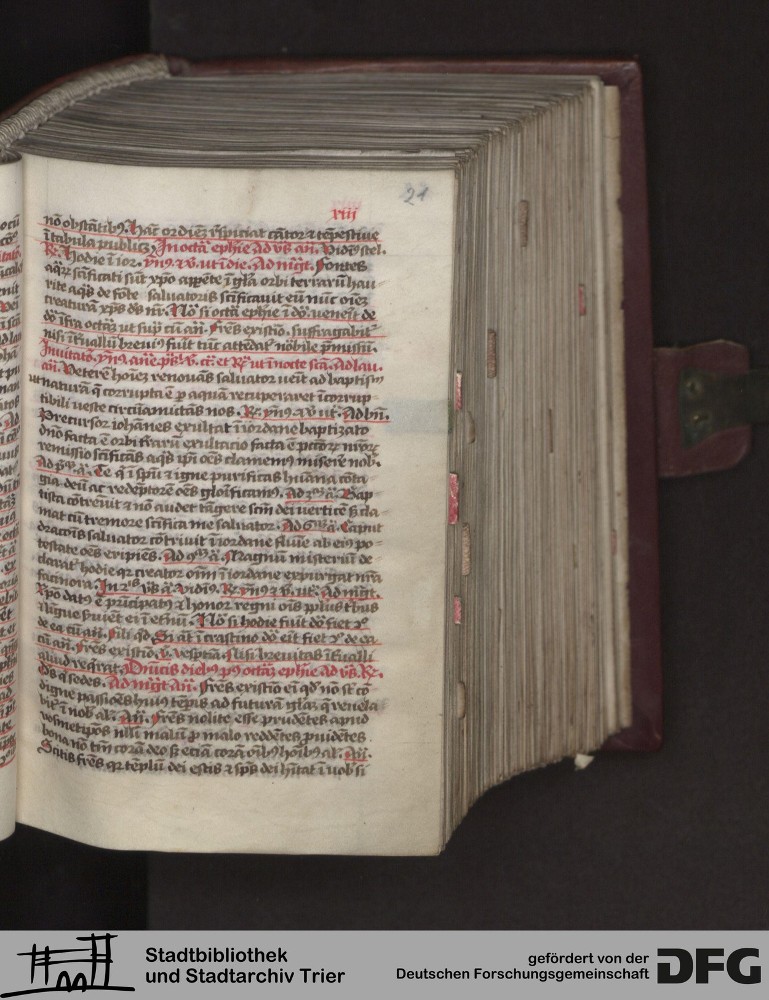 21
xiij
nō obstātibꝫ. Hāc ordīez r̄spiciat cātor ⁊ tēpestiue
ī tabula publicꝫ. In octā ephīe Ad vs̄ an̄. Vidēt stel.
Rꝫ. Hodie ī ior. ẏmꝯ ⁊ v̄. ut ī die. Ad m̄gt. fontes
aq̄rꝝ sc̄ificati sūt xp̄o appēte ī gl̄a orbi terrarū hau
rite aq̄s de fōte saluatoris sc̄ificauit eū nūc oīez
creaturā xp̄s ds̄ nr̄. Nō si octā ephīe ī dō. uenēit de
dō īfra octās ut sup̄ cū an̄. Frēs existīo. suffragabit̄
nisi īteruallū breuiꝯ fuīt tūc attēdat̄ nōbile p̄missū.
Inuitatō. ẏmꝯ. an̄e. ps̄. v̄. cr̄. et Rꝫ ut ī nocte scā. Ad lau.
an̄. Veterē hoīez renouās saluator ueīt ad baptism̄
ut naturā q̄ corrupta ē p̄ aquā recuperaret īcorrup
tibili ueste circūamictās nos. Rꝫ. ẏmꝯ. ⁊ v̄ ut. Ad bn̄.
Precursor iohānes exultat ī iordane baptizato
dn̄o facta ē orbi t̄rarū exultacio facta ē pctōꝝ nr̄oꝝ
remissio sc̄ificās aq̄s ip̄i oēs clamemꝯ miserē nob̄.
Ad p̄ā. ā. Te q̄ ī sp̄u ⁊ igne purificas hūana cōta
gia deū ac redēptorē oēs glōificamꝯ. Ad 3ā ā. Bap
tista cōtremuit ⁊ nō audet tāgere scm̄ dei verticē s̄ cla
mat cū tremore sc̄ifica me saluator. Ad 6ā ā. Caput
draconis saluator cōtriuit ī iordane fluuīe ab eiꝯ po
testate oēs eripiēs. Ad 9ā ā. Magnū misteriū de
clarat̄ hodie qꝛ creator oīm ī iordane expurgat nr̄a
facinora. In 2is vs̄ ā. vidīꝯ. Rꝫ ẏmꝯ ⁊ v̄. ut. Ad m̄gt.
Xp̄o datꝯ ē prīcipatꝯ ⁊ honor regni oīs pplūs tbus
⁊ līgue seruīet ei ī etnū. Nō si hodie fuīt dō fiet 2o
de ea cū an̄. Fili qd̄. Si āt ī crastīo dō eīt fiet 2o de ea
cū an̄. Frēs existīo. v̄. vesptīa. Nisi breuitas īterualli
aliud req̄rat. Priuatis diebꝯ pꝯ octās ephīe ad vs̄. Rꝫ.
Ds̄ q̄ sedes. Ad m̄gt an̄. Frēs existīo ei qd̄ nō st̄ cō
digne passiōes huiꝯ tēpis ad futurā gl̄az q̄ reuela
bit̄ ī nob̄ al̄. An̄. Frēs nolite esse prudētes apud
vosmetip̄os nulli malū p̄ malo reddētes prouidētes
bona nō tm̄ corā deo s̄ eciā corā oībꝯ hoībꝯ al̄. An̄.
Scitis frēs qꝛ tēplū dei estis ⁊ sp̄s dei hītat ī uob̄ si
Stadtbibliothek
und Stadtarchiv Trier
gefördert von der
Deutschen Forschungsgemeinschaft
DFG